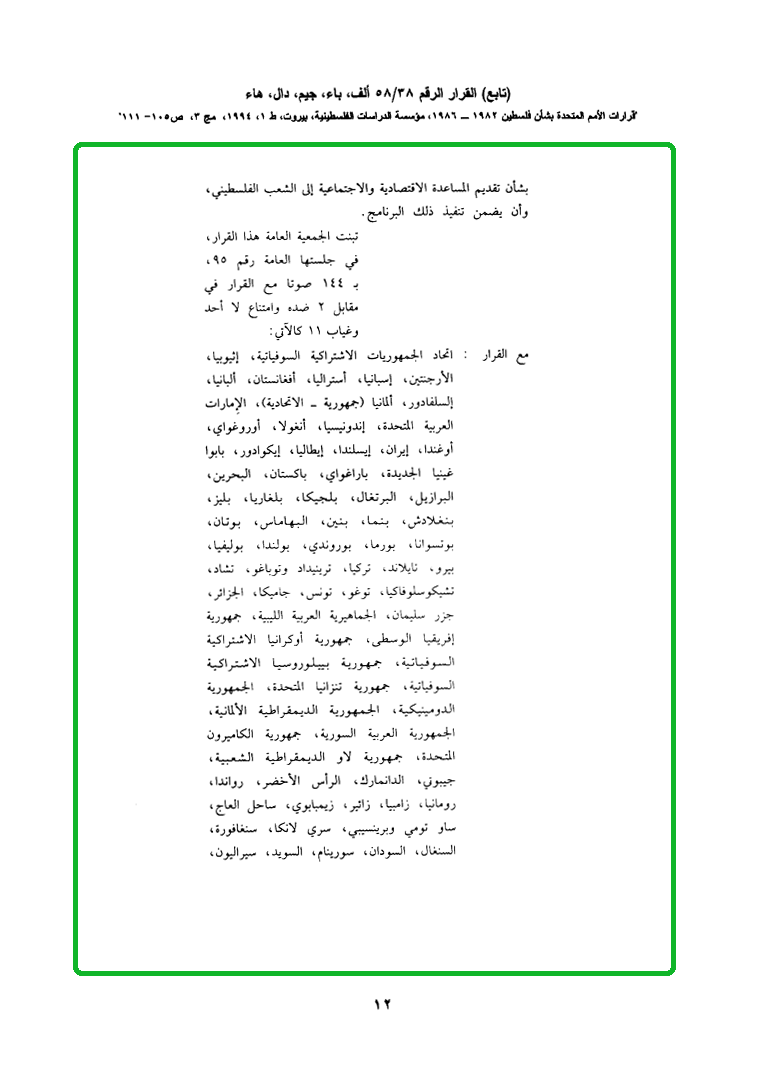 (تابع) القرار الرقم ٥٨/٣٨ ألف، باء، جيم، دال، هاء
"قرارات الأمم المتحدة بشأن فلسطين ١٩٨٢ ــ ١٩٨٦، مؤسسة الدراسات الفلسطينية، بيروت، ط ١، ١٩٩٤، مج ٣، ص١٠٥- ١١١"
بشأن تقديم المساعدة الاقتصادية والاجتماعية إلى الشعب الفلسطيني،
وأن يضمن تنفيذ ذلك البرنامج.
تبنت الجمعية العامة هذا القرار،
في جلستها العامة رقم ٩٥،
بـ ١٤٤ صوتا مع القرار في
مقابل ٢ ضده وامتناع لا أحد
وغياب ١١ كالآتي:
مع القرار : اتحاد الجمهوريات الاشتراكية السوفياتية، إثيوبيا،
الأرجنتين، إسبانيا، أستراليا، أفغانستان، ألبانيا،
إلسلفادور، ألمانيا (جمهورية ــ الاتحادية)، الإمارات
العربية المتحدة، إندونيسيا، أنغولا، أوروغواي،
أوغندا، إيران، إيسلندا، إيطاليا، إيكوادور، بابوا
غينيا الجديدة، باراغواي، باكستان، البحرين،
البرازيل، البرتغال، بلجيكا، بلغاريا، بليز،
بنغلادش، بنما، بنين، البهاماس، بوتان،
بوتسوانا، بورما، بوروندي، بولندا، بوليفيا،
بيرو، تايلاند، تركيا، ترينيداد وتوباغو، تشاد،
تشيكوسلوفاكيا، توغو، تونس، جاميكا، الجزائر،
جزر سليمان، الجماهيرية العربية الليبية، جمهورية
إفريقيا الوسطى، جمهورية أوكرانيا الاشتراكية
السوفياتية، جمهورية بييلوروسيا الاشتراكية
السوفياتية، جمهورية تنزانيا المتحدة، الجمهورية
الدومينيكية، الجمهورية الديمقراطية الألمانية،
الجمهورية العربية السورية، جمهورية الكاميرون
المتحدة، جمهورية لاو الديمقراطية الشعبية،
جيبوتي، الدانمارك، الرأس الأخضر، رواندا،
رومانيا، زامبيا، زائير، زيمبابوي، ساحل العاج،
ساو تومي وبرينسيبي، سري لانكا، سنغافورة،
السنغال، السودان، سورينام، السويد، سيراليون،
١٢